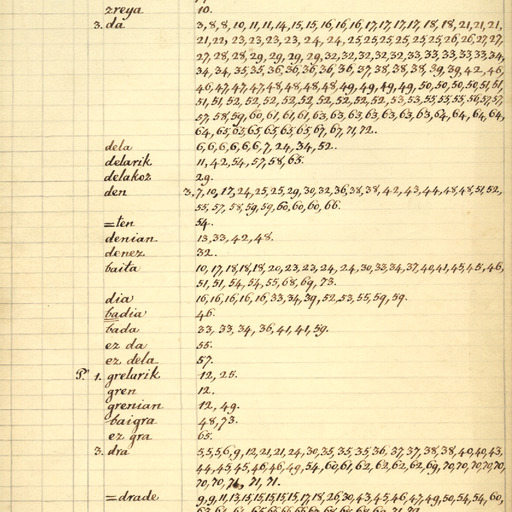 zreya 10.
3. da 3, 8, 8, 10, 11, 11, 14, 15, 15, 16, 16, 16, 17, 17, 17, 17, 18, 18, 21, 21, 21,
21, 22, 23, 23, 23, 23, 24, 24, 25, 25, 25, 25, 25, 25, 26, 26, 27, 27,
27, 28, 28, 29, 29, 29, 29, 32, 32, 32, 32, 32, 33, 33, 33, 33, 33, 34,
34, 34, 35, 35, 36, 36, 36, 36, 36, 37, 38, 38, 38, 39, 39, 42, 46,
46, 47, 47, 47, 48, 48, 48, 48, 49, 49, 49, 49, 50, 50, 50, 50, 51, 51,
51, 51, 52, 52, 52, 52, 52, 52, 52, 52, 52, 53, 53, 55, 55, 55, 56, 57, 57,
57, 58, 59, 60, 61, 61, 61, 63, 63, 63, 63, 63, 63, 63, 64, 64, 64, 64,
64, 65, 65, 65, 65, 65, 65, 67, 67, 71, 72.
dela 6, 6, 6, 6, 6, 6, 7, 24, 34, 52.
delarik 11, 42, 54, 57, 58, 65.
delakoz 29.
den 3, 7, 10, 17, 24, 25, 25, 29, 30, 32, 36, 38, 38, 42, 43, 44, 48, 48, 51, 52,
55, 57, 58, 59, 59, 60, 60, 60, 66.
=ten 54.
denian 13, 33, 42, 48.
denez 32.
baita 10, 17, 18, 18, 18, 20, 23, 23, 24, 24, 30, 33, 34, 37, 40, 41, 45, 45, 46,
51, 51, 54, 54, 55, 68, 69, 73.
dia 16, 16, 16, 16, 16, 33, 34, 39, 52, 53, 55, 59, 59.
badia 46.
bada 33, 33, 34, 36, 41, 41, 59.
ez da 55.
ez dela 57.
P. 1. grelarik 12, 25.
gren 12.
grenian 12, 49.
baigra 48, 73.
ez gra 65.
3. dra 5, 5, 5, 6, 9, 12, 21, 21, 24, 30, 35, 35, 35, 36, 37, 37, 38, 38, 40, 40, 43,
44, 45, 45, 46, 46, 49, 54, 60, 61, 62, 62, 62, 62, 69, 70, 70, 70, 70, 70,
70, 70, 71, 71, 71.
=drade 9, 9, 11, 13, 15, 15, 15, 15, 17, 18, 26, 30, 43, 45, 46, 47, 49, 50, 54, 54, 60